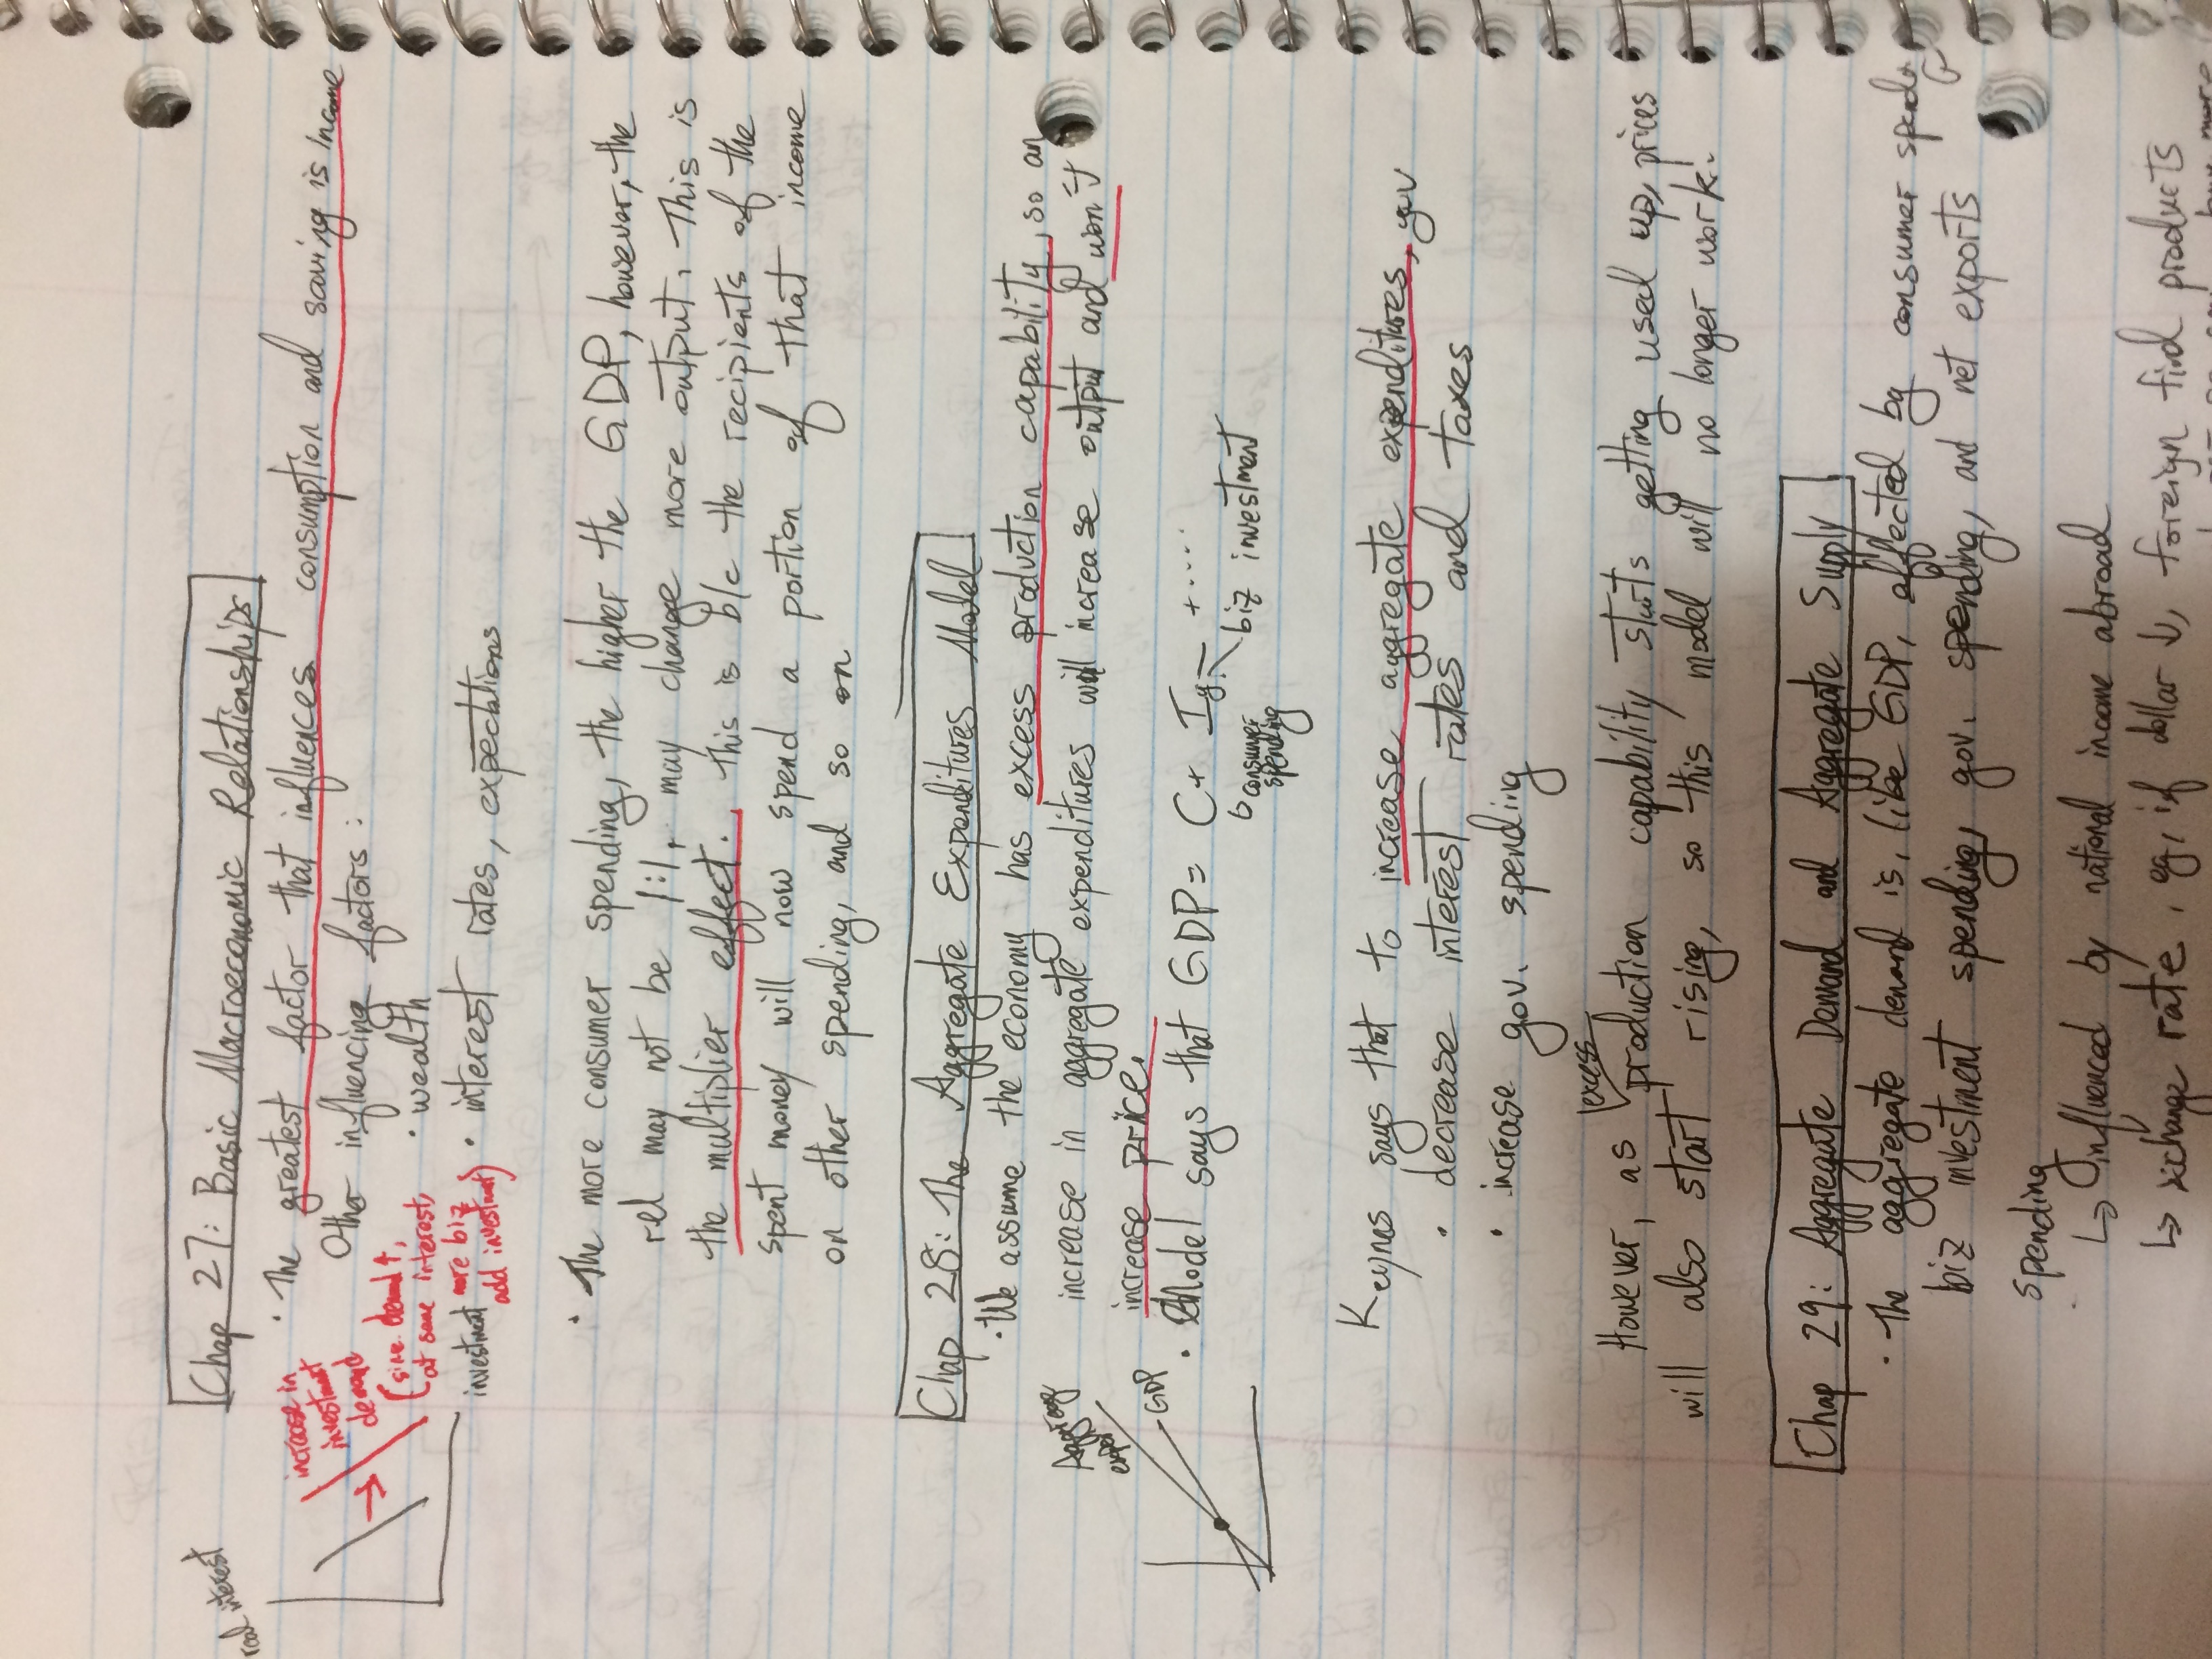 Chap 27: Basic Macroeconomic Relationships
real interest
increase in
investment
demand
(since demand ↑,
at same interest,
more biz
add investment)
investment
· The greatest factor that influences consumption and saving is income
Other influencing factors:
· wealth
· interest rates, expectations
· The more consumer spending, the higher the GDP, however, the
rel may not be 1:1, may change more output. This is
the multiplier effect. This is b/c the recipients of the
spent money will now spend a portion of that income
on other spending, and so on
Chap 28: The Aggregate Expenditures Model
· We assume the economy has excess production capability, so an
increase in aggregate expenditures will increase output and won't
increase price.
GDP
· Model says that GDP = C + Ig + .....
consumer
spending
biz investment
Keynes says that to increase aggregate expenditures, gov
· decrease interest rates and taxes
· increase gov. spending
excess
However, as production capability starts getting used up, prices
will also start rising, so this model will no longer work.
Chap 29: Aggregate Demand and Aggregate Supply
· The aggregate demand is, like GDP, affected by consumer
biz investment spending, gov. spending, and net exports
spending
↳ influenced by national income abroad
↳ exchange rate, eg, if dollar ↓, foreign find products
buy more